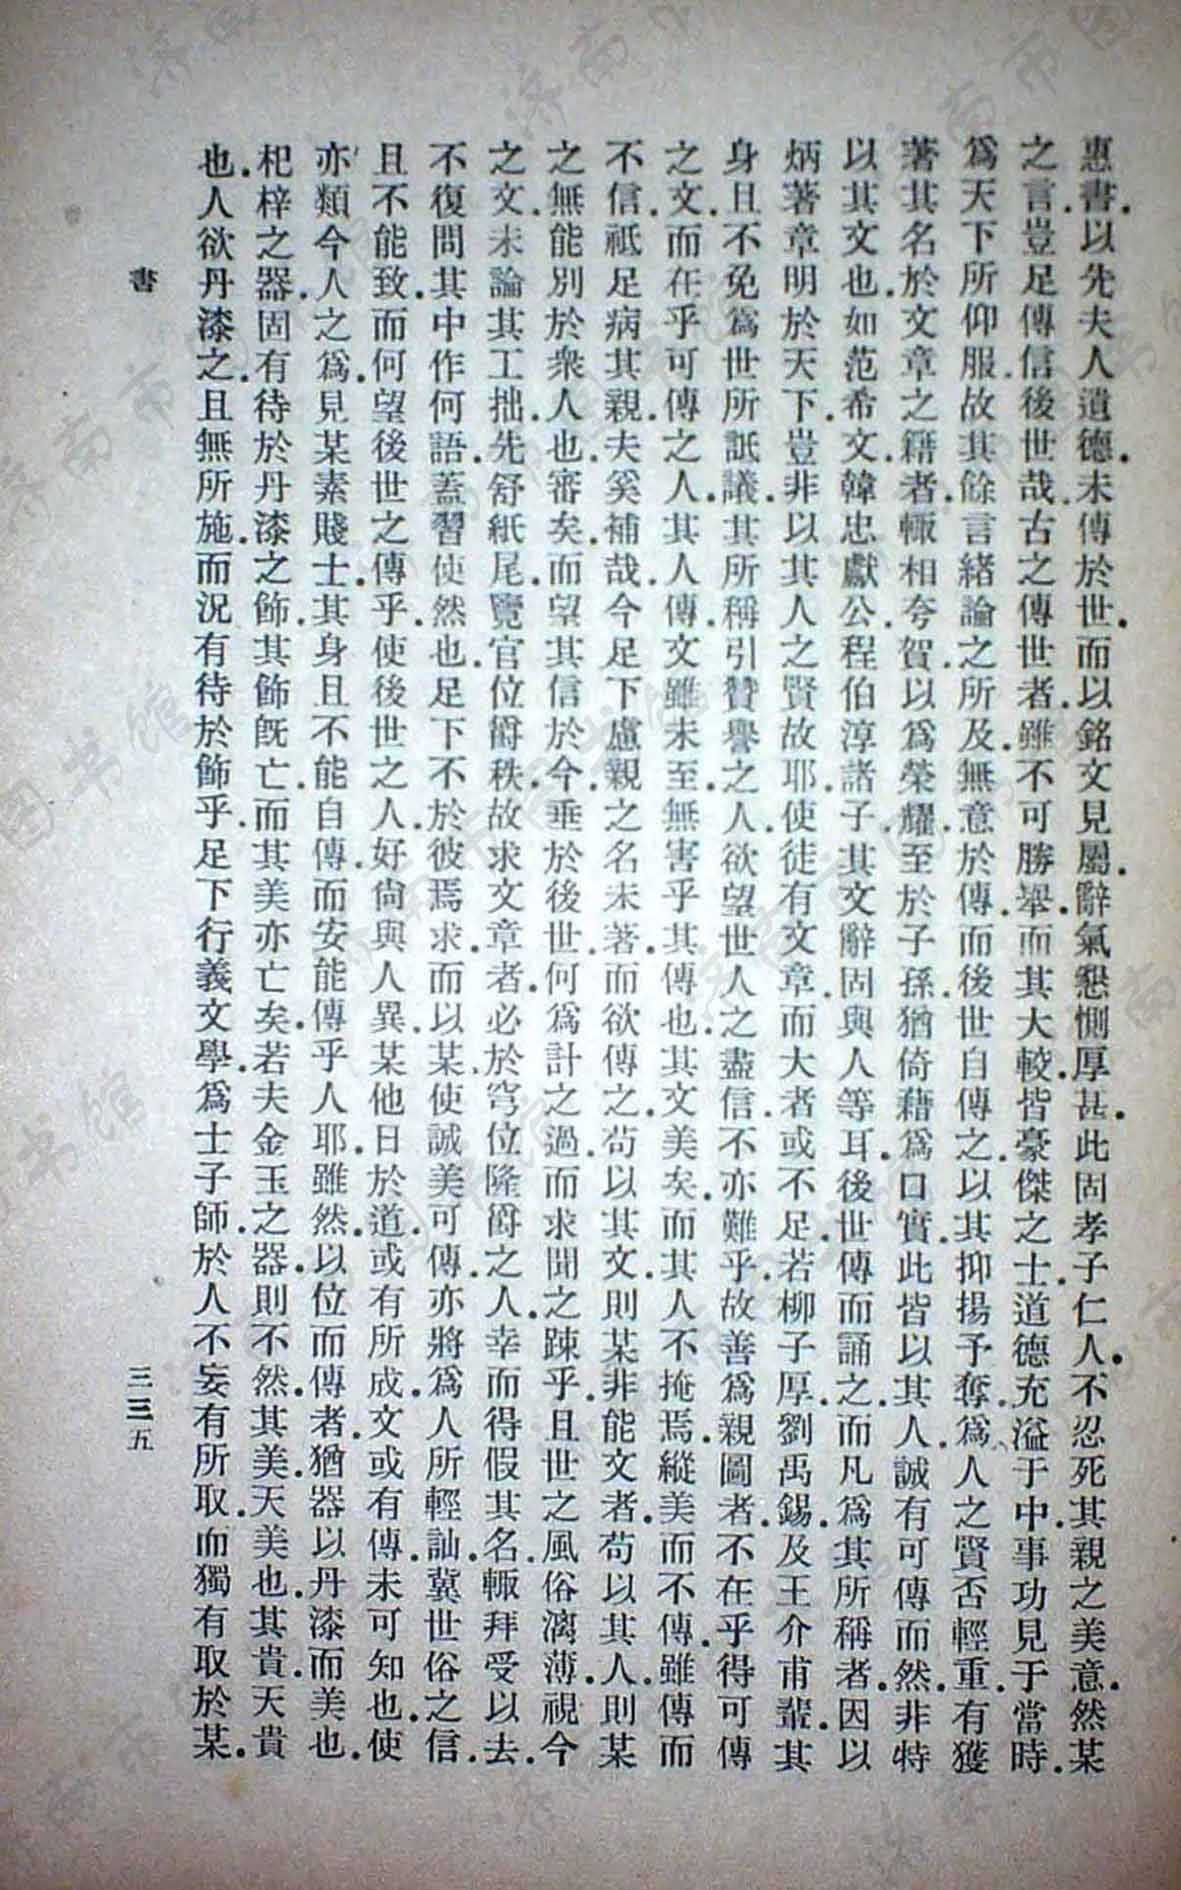 惠書.以先夫人道德.未傳於世.而以銘文見屬.辭氣懇惻厚甚.此固孝子仁人.不忍死其親之美意.然某
之言.豈足傳信後世哉.古之傳世者.雖不可勝舉.而其大較.皆豪傑之士.道德充溢于中.事功見于當時.
爲天下所仰服.故其餘言緒論之所及.無意於傳.而後世自傳之.以其抑揚予奪.爲人之賢否輕重.有獲
著其名於文章之籍者.輙相夸賀.以爲榮耀.至於子孫.猶倚藉爲口實.此皆以其人.誠有可傳而然.非特
以其文也.如范希文.韓忠獻公.程伯淳諸子.其文辭固與人等耳.後世傳而誦之.而凡爲其所稱者.因以
炳著章明於天下.豈非以其人之賢故耶.使徒有文章.而大者或不足.若柳子厚.劉禹錫.及王介甫輩.其
身且不免爲世所詆議.其所稱引贊譽之人.欲望世人之盡信.不亦難乎.故善爲親圖者.不在乎得可傳
之文.而在乎可傳之人.其人傳.文雖未至.無害乎其傳也.其文美矣.而其人不掩焉.縱美而不傳.雖傳而
不信.祇足病其親.夫奚補哉.今足下慮親之名未著.而欲傳之.苟以其文.則某非能文者.苟以其人.則某
之無能別於衆人也審矣.而望其信於今.垂於後世.何爲計之過.而求聞之踈乎.且世之風俗漓薄.視今
之文.未論其工拙.先舒紙尾.覽官位爵秩.故求文章者.必於穹位隆爵之人.幸而得假其名.輙拜受以去.
不復問其中作何語.蓋習使然也.足下不於彼焉求.而以某.使誠美可傳.亦將爲人所輕訕.冀世俗之信.
且不能致.而何望後世之傳乎.使後世之人.好尙與人異.某他日於道.或有所成.文或有傳.未可知也.使
亦類今人之爲.見某素賤士.其身且不能自傳.而安能傳乎人耶.雖然.以位而傳者.猶器以丹漆而美也.
杞梓之器.固有待於丹漆之飾.其飾旣亡.而其美亦亡矣.若夫金玉之器.則不然.其美.天美也.其貴.天貴
也.人欲丹漆之.且無所施.而況有待於飾乎.足下行義文學.爲士子師.於人不妄有所取.而獨有取於某.
書
三三五